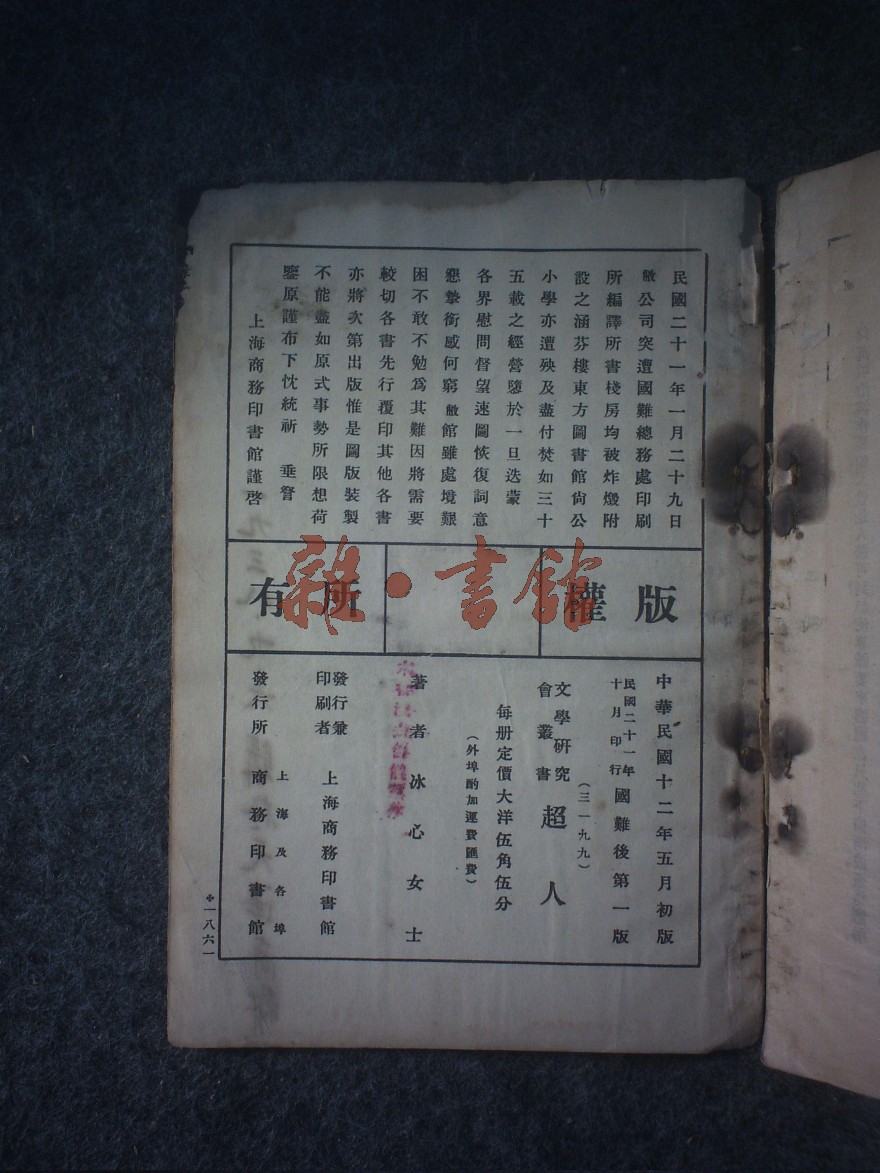 民國二十一年一月二十九日
敝公司突遭國難總務處印刷
所編譯所書棧房均被炸燬附
設之涵芬樓東方圖書館尙公
小學亦遭殃及盡付焚如三十
五載之經營隳於一旦迭蒙
各界慰問督望速圖恢復詞意
懇摯銜感何窮敝館雖處境艱
困不敢不勉爲其難因將需要
較切各書先行覆印其他各書
亦將次第出版惟是圖版裝製
不能盡如原式事勢所限想荷
鑒原謹布下忱統祈 垂詧
上海商務印書館謹啓
版權所有
雜·書館
中華民國十二年五月初版
民國二十一年十月印行國難後第一版
(三一九九)
文學研究會叢書 超人
每册定價大洋伍角伍分
(外埠酌加運費匯費)
著者 冰心女士
發行兼印刷者 上海商務印書館
發行所 上海及各埠 商務印書館
一八六一